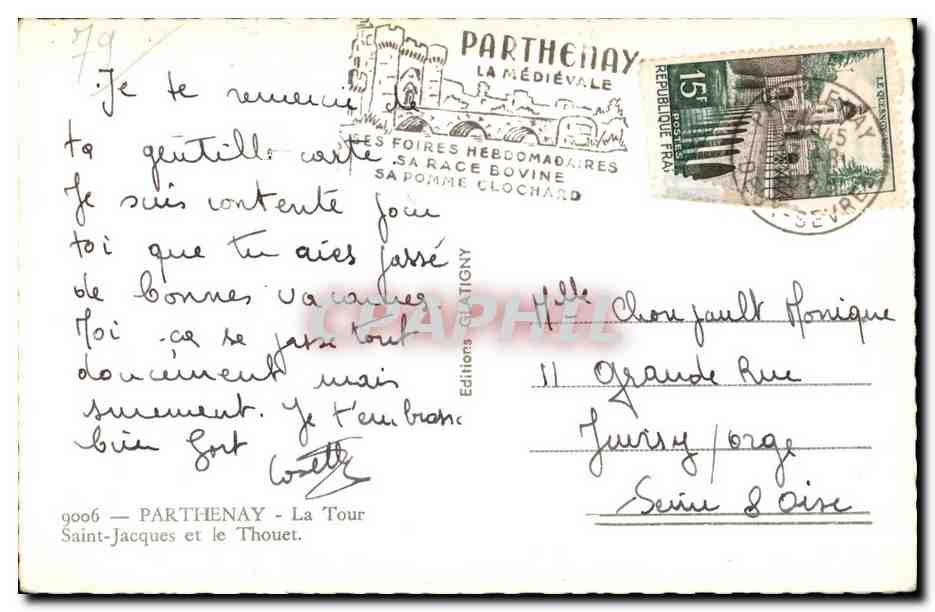 79
PARTHENAY
LA MÉDIÉVALE
SES FOIRES HEBDOMADAIRES
SA RACE BOVINE
SA POMME CLOCHARD
15F
POSTES
REPUBLIQUE FRA
LE QUESNOY
Je te remercie de
ta gentille carte.
Je suis contente pour
toi que tu aies passé
de bonnes vacances.
Moi ça se passe tout
doucement mais
surement. Je t'embrasse
bien fort
Cosette
9006 — PARTHENAY - La Tour
Saint-Jacques et le Thouet.
Editions GLATIGNY
CPAPHIL
Mlle Chonjault Monique
11 Grande Rue
Juvisy/orge
Seine & Oise